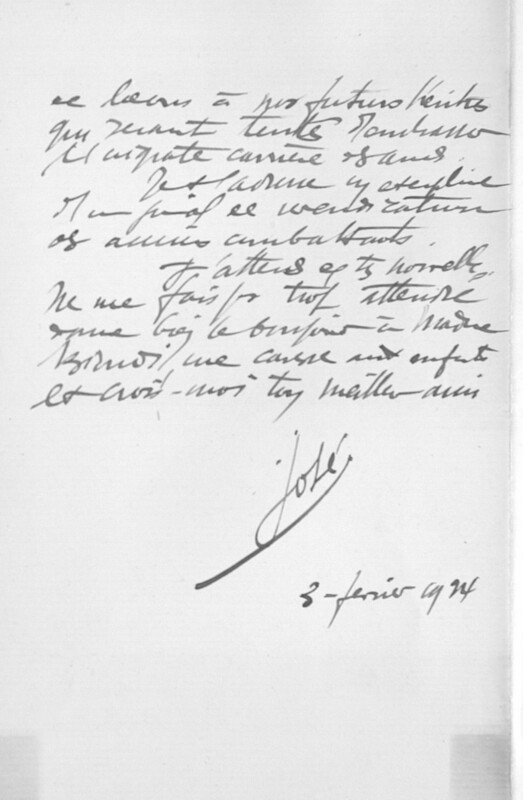 de leçons à nos futurs
qui seront tentés d'embrasser
l'ingrate carrière des arts.
Je t'adresse un exemplaire
d'un
des anciens combattants.
J'attends de tes nouvelles.
Ne me fais pas trop attendre
donne bien le bonjour à Madame
une caresse aux enfants
et crois-moi ton meilleur ami
José
3 - février 1924